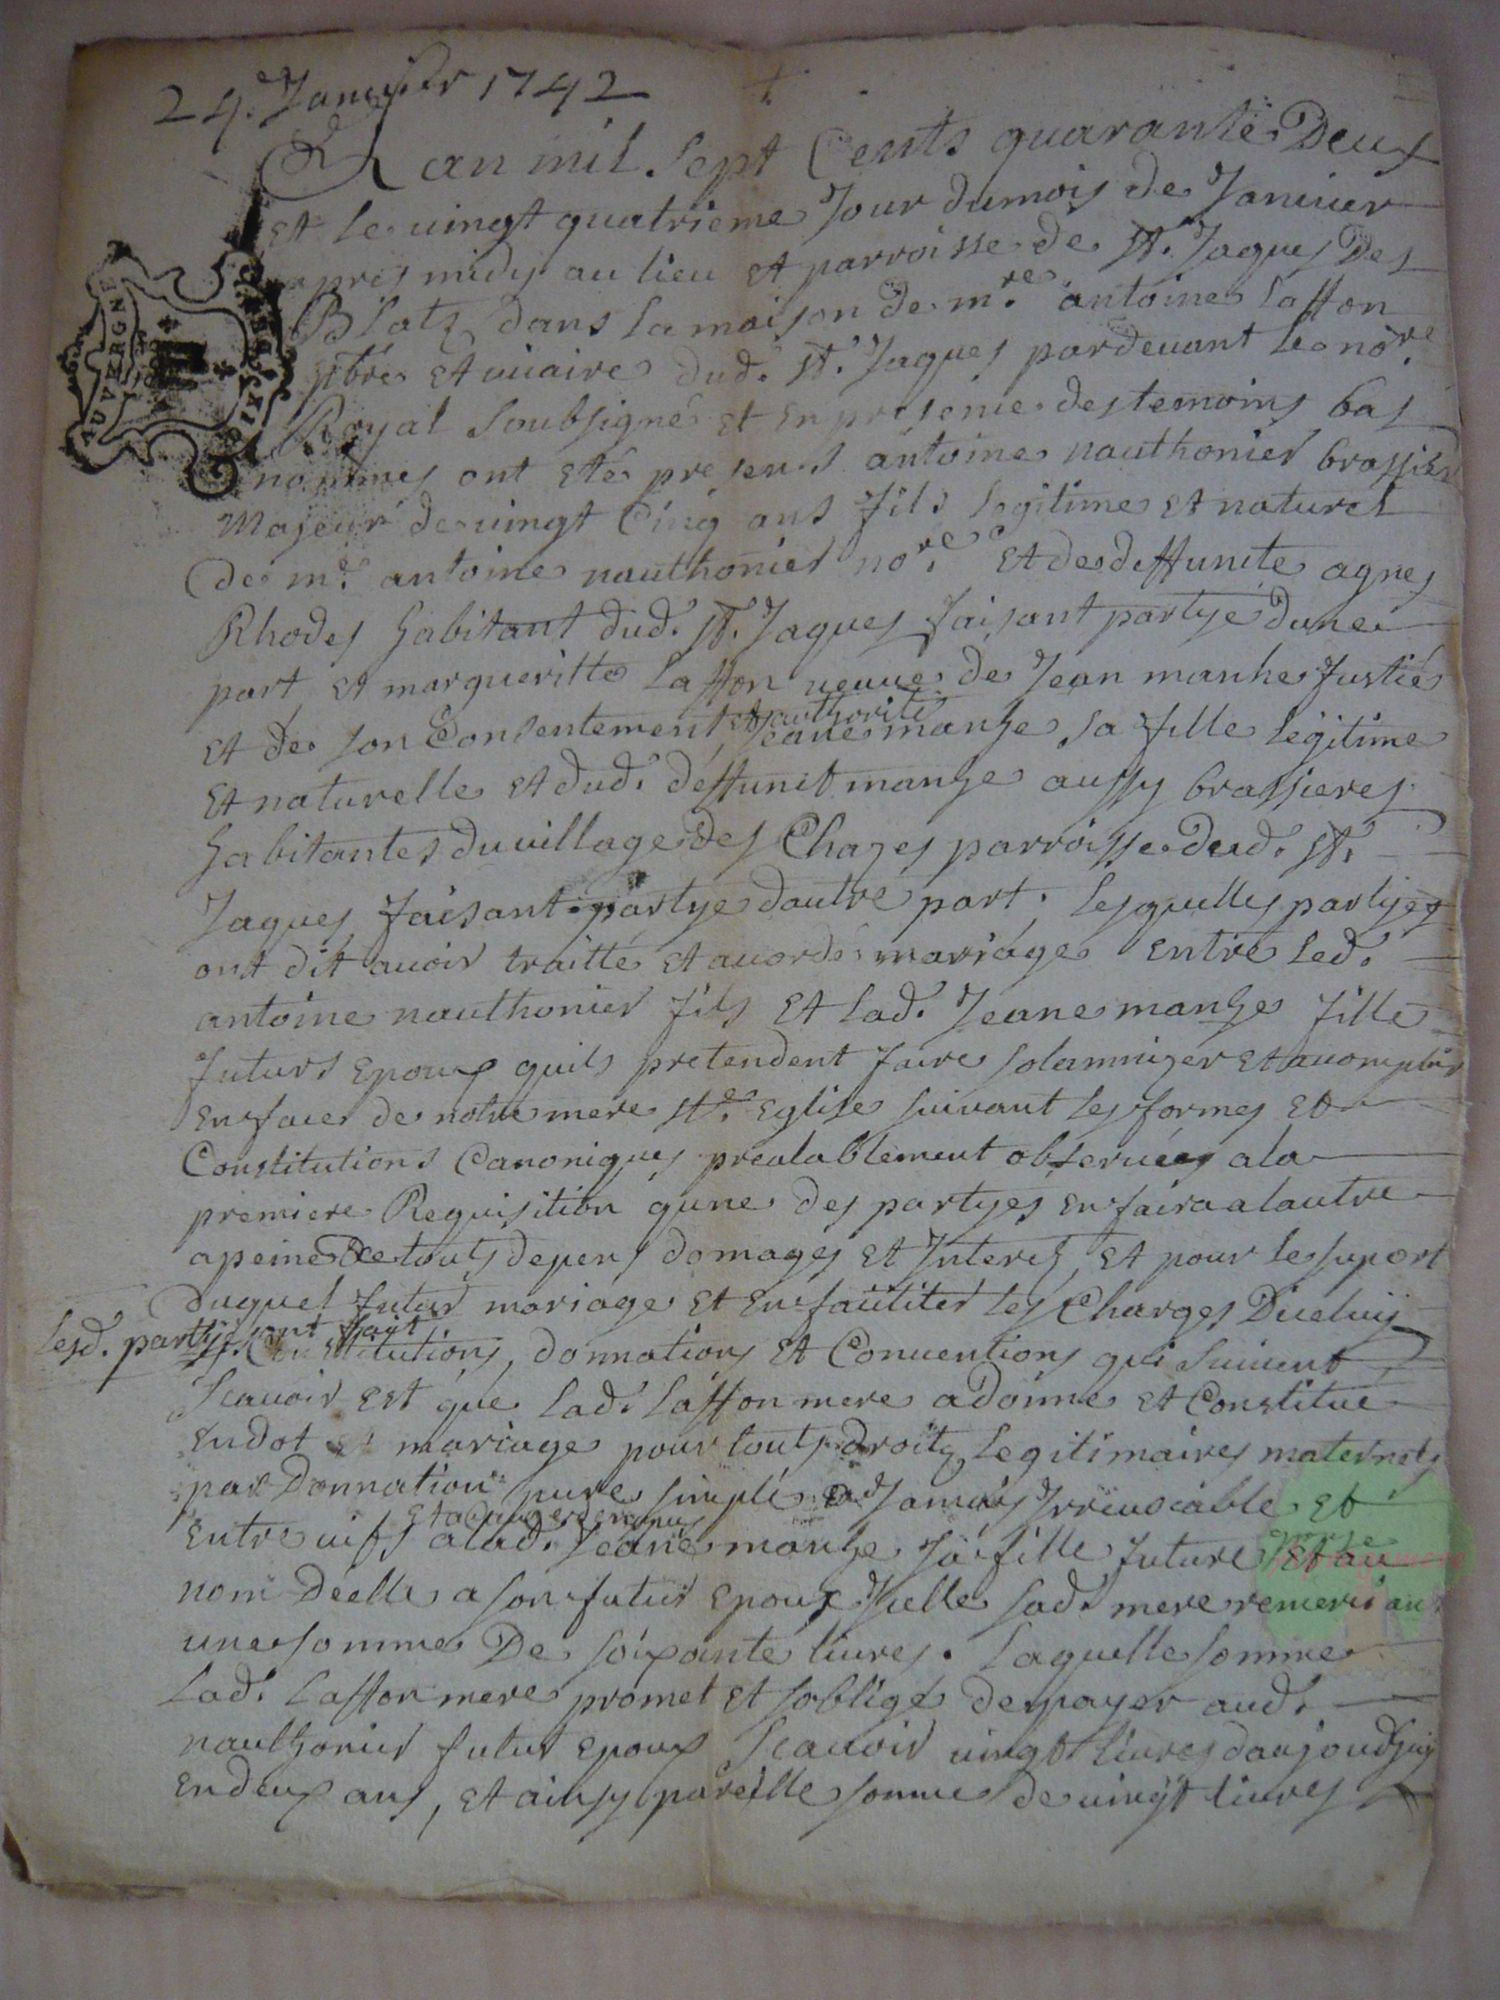 24. Janvier 1742
L an mil sept Cents quarante Deux
Et le vingt quatrieme Jour du mois de Janvier
apres midy au lieu Et parroisse de St. Jaques Des
Blatz dans la maison de mre. antoine laffon
ptbre Et vicaire dud. St. Jaques pardevant le nore.
AUVERGNE
Royal soubsigné et En presence des temoins bas
nommes ont Eté presens antoine nauthonier brassier
Majeur de vingt Cinq ans fils legitime Et naturel
de me. antoine nauthonier nore. Et de deffuncte agnes
Rhodes habitant dud. St. Jaques faisant partye dune
part, Et margueritte laffon veuve de Jean manhe
Et de son Consentement Et authorité Jeane manhe sa fille legitime
Et naturelle Et dud. deffunct manhe aussy brassieres
habitantes du village des Chazes parroisse dud. St.
Jaques faisant partye dautre part, lesquelles partyes
ont dit avoir traitté Et acordé mariage Entre led.
antoine nauthonier fils Et lad. Jeane manhe fille
futurs Epoux quils pretendent faire solamnizer Et acomplir
En face de notre mere Ste. Eglise suivant les formes Et
Constitutions Canoniques prealablement observées a la
premiere Requisition qune des partyes En faira a lautre
a peine De touts depens domages Et Interetz, Et pour le suport
duquel futur mariage Et En faciliter les Charges Diceluy
lesd. partyes ont fait
les Constitutions, donnations Et Conventions qui suivent
Scavoir Est que lad. laffon mere a donné Et Constitué
En dot Et mariage pour touts droitz legitimaires maternels
par Donnation pure simple a Jamais Irrevocable Et
Entre vifs a lad. Jeane manhe sa fille future Et au
nom D'elle a son futur Epoux Icelle sad. mere
une somme De soixante livres. laquelle somme
lad. laffon mere promet Et soblige de payer aud.
nauthonier futur Epoux Scavoir vingt livres daujourdhuy
En deux ans, Et ainsy pareille somme de vingt livres